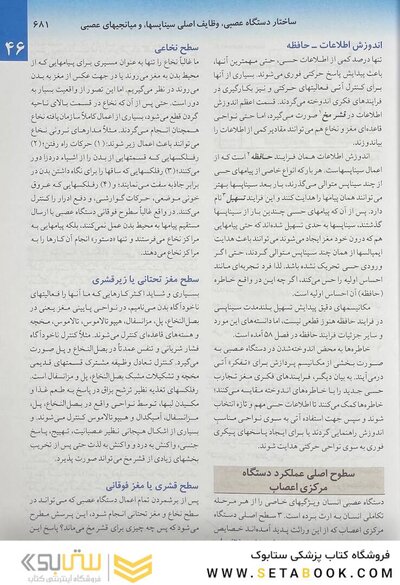 ساختار دستگاه عصبی، وظایف اصلی سیناپسها، و میانجیهای عصبی
۶۸۱
۴۶
اندوزش اطلاعات ــ حافظه
تنها درصد کمی از اطلاعات حسی، حتی مهمترین آنها،
باعث پیدایش پاسخ حرکتی فوری می‌شوند. بسیاری از آنها
برای کنترل آتی فعالیتهای حرکتی و نیز بکارگیری در
فرایندهای فکری اندوخته می‌گردند. قسمت اعظم اندوزش
اطلاعات در قشر مخ صورت می‌گیرد، اما حتی نواحی
قاعده‌ای مغز و نخاع هم می‌توانند مقادیر کمی از اطلاعات را
بیاندوزند.
اندوزش اطلاعات همان فرایند حافظه است که از
اعمال سیناپسهاست. هر بار که انواع خاصی از پیامهای حسی
از چند سیناپس متوالی می‌گذرند، بار بعد سیناپسها بهتر
می‌توانند همان پیامها را هدایت کنند و این فرایند تسهیل نام
دارد. پس از آن که پیامهای حسی چندین بار از سیناپسها
گذشتند، سیناپسها به حدی تسهیل شده‌اند که حتی پیامهایی
هم که درون خود مغز ایجاد می‌شوند می‌توانند باعث هدایت
ایمپالسها از همان چند سیناپس متوالی گردند، حتی اگر
ورودی حسی تحریک نشده باشد. لذا فرد تجربه‌ای مانند
احساس اولیه را حس می‌کند، اگر چه این در واقع خاطره
(حافظه) آن احساس اولیه است.
مکانیسمهای دقیق پیدایش تسهیل بلندمدت سیناپسی
در فرایند حافظه هنوز قطعی نیست، اما دانسته‌های این مورد
و سایر جزئیات فرایند حافظه در فصل ۵۸ آمده است.
خاطره‌ها به محض اندوخته‌شدن در دستگاه عصبی به
صورت بخشی از مکانیسم پردازش برای «تفکر» آتی
درمی‌آیند. به بیان دیگر، فرایندهای فکری مغز تجارب
حسی جدید را با خاطره‌های اندوخته مقایسه می‌کنند؛
خاطره‌ها کمک می‌کنند تا اطلاعات حسی مهم و تازه انتخاب
شوند و سپس جهت استفاده آتی به سوی نواحی مناسب
اندوزش راهنمایی گردند یا برای ایجاد پاسخهای پیکری
فوری به سوی نواحی حرکتی هدایت شوند.
سطوح اصلی عملکرد دستگاه
مرکزی اعصاب
دستگاه عصبی انسان ویژگیهای خاصی را از هر مرحله
تکاملی انسان به ارث برده است. ۳ سطح اصلی دستگاه
مرکزی اعصاب که از این وراثت پدید آمده‌اند خصایص
سطح نخاعی
ما غالباً نخاع را تنها به عنوان مسیری برای پیامهایی که از
محیط بدن به مغز می‌روند یا در جهت عکس از مغز به بدن
می‌روند در نظر می‌گیریم. اما این تصور از واقعیت بسیار به
دور است. حتی پس از آن که نخاع در قسمت بالای ناحیه
گردن قطع می‌شود، بسیاری از اعمال کاملاً سازمان یافته نخاع
همچنان انجام می‌گردند. مثلاً مدارهای نرونی نخاع
می‌توانند باعث اعمال زیر شوند: (۱) حرکات راه رفتن؛ (۲)
رفلکسهایی که قسمتهایی از بدن را از اشیاء دردزا دور
می‌کنند؛ (۳) رفلکسهایی که ساقها را برای نگاه داشتن بدن در
برابر جاذبه سفت می‌نمایند؛ و (۴) رفلکسهایی که عروق
خونی موضعی، حرکات گوارشی، و دفع ادرار را کنترل
می‌کنند. در واقع غالباً سطوح فوقانی دستگاه عصبی با ارسال
مستقیم پیامها به محیط بدن عمل نمی‌کنند، بلکه پیامهایی به
مراکز نخاع می‌فرستند و تنها «دستور» انجام آن کارها را به
مراکز نخاع می‌دهند.
سطح مغز تحتانی یا زیرقشری
بسیاری و شاید اکثر کارهایی که ما آنها را فعالیتهای
ناخودآگاه بدن می‌نامیم، در نواحی پایینی مغز یعنی در
بصل‌النخاع، پل، مزانسفال، هیپوتالاموس، تالاموس، مخچه
و هسته‌های قاعده‌ای کنترل می‌شوند. مثلاً کنترل ناخودآگاه
فشار شریانی و تنفس عمدتاً در بصل‌النخاع و پل صورت
می‌گیرد. کنترل تعادل وظیفه مشترک قسمتهای قدیمی
مخچه و تشکیلات مشبک بصل‌النخاع، پل و مزانسفال است.
رفلکسهای تغذیه نظیر ترشح بزاق در پاسخ به طعم غذا و
مکیدن لبها، توسط نواحی واقع در بصل‌النخاع، پل،
مزانسفال، آمیگدال و هیپوتالاموس کنترل می‌شوند. و
بسیاری از اشکال هیجانی نظیر عصبانیت، تهییج، پاسخ
جنسی، واکنش به درد و واکنش به لذت حتی پس از تخریب
بخشهای زیادی از قشر مخ می‌تواند صورت پذیرد.
سطح قشری یا مغز فوقانی
پس از برشمردن تمام اعمال دستگاه عصبی که می‌تواند در
سطح نخاع و مغز تحتانی انجام شود، این پرسش مطرح
می‌شود که پس چه چیزی برای قشر مخ می‌ماند؟ پاسخ این
فروشگاه کتاب پزشکی ستابوک
WWW.SETABOOK.COM
ستابوک
فروشگاه اینترنتی کتاب